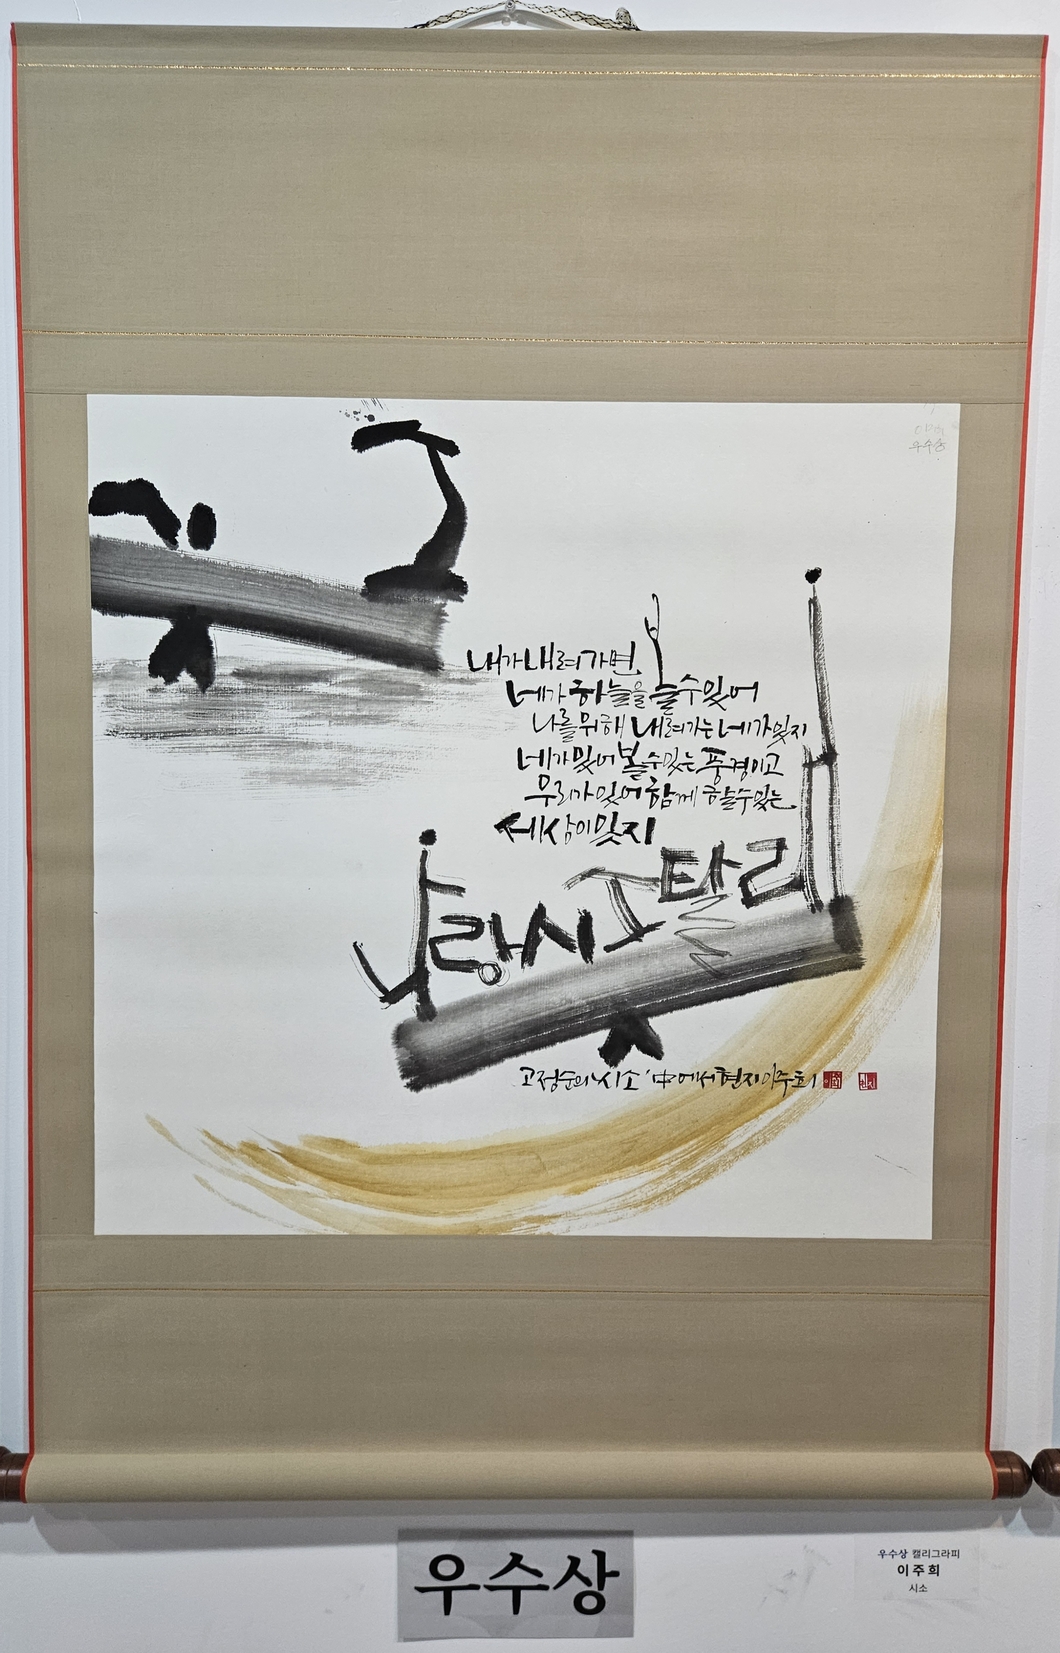 우수상
내가 내려가면
네가 하늘을 볼 수 있어
나를 위해 내려가는 네가 있지
네가 있어 볼 수 있는 풍경이고
우리가 있어 함께 하늘 수 있는
세상이 있지
나랑 시소 탈래
고정순의 '시소' 中에서 현지 이주희
우수상
우수상 캘리그라피
이주희
시소